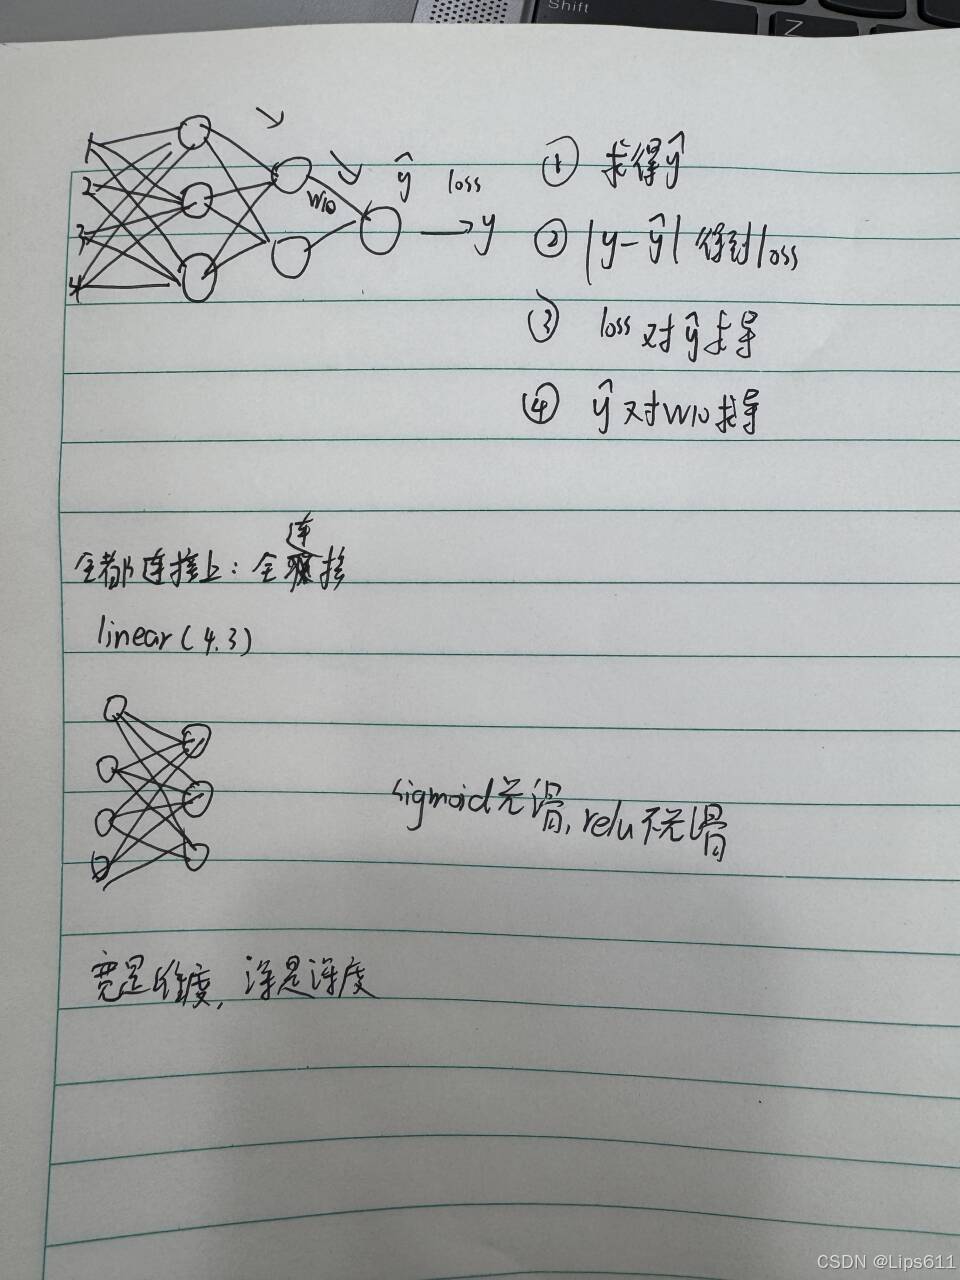 Shift
Z
1
2
3
4
w10
ŷ loss
y
① 求得ŷ
② |y-ŷ| 得到loss
③ loss 对ŷ求导
④ ŷ对w10求导
全都连接上：全连接
linear(4.3)
sigmoid光滑,relu不光滑
宽是维度，深是深度
CSDN @Lips611